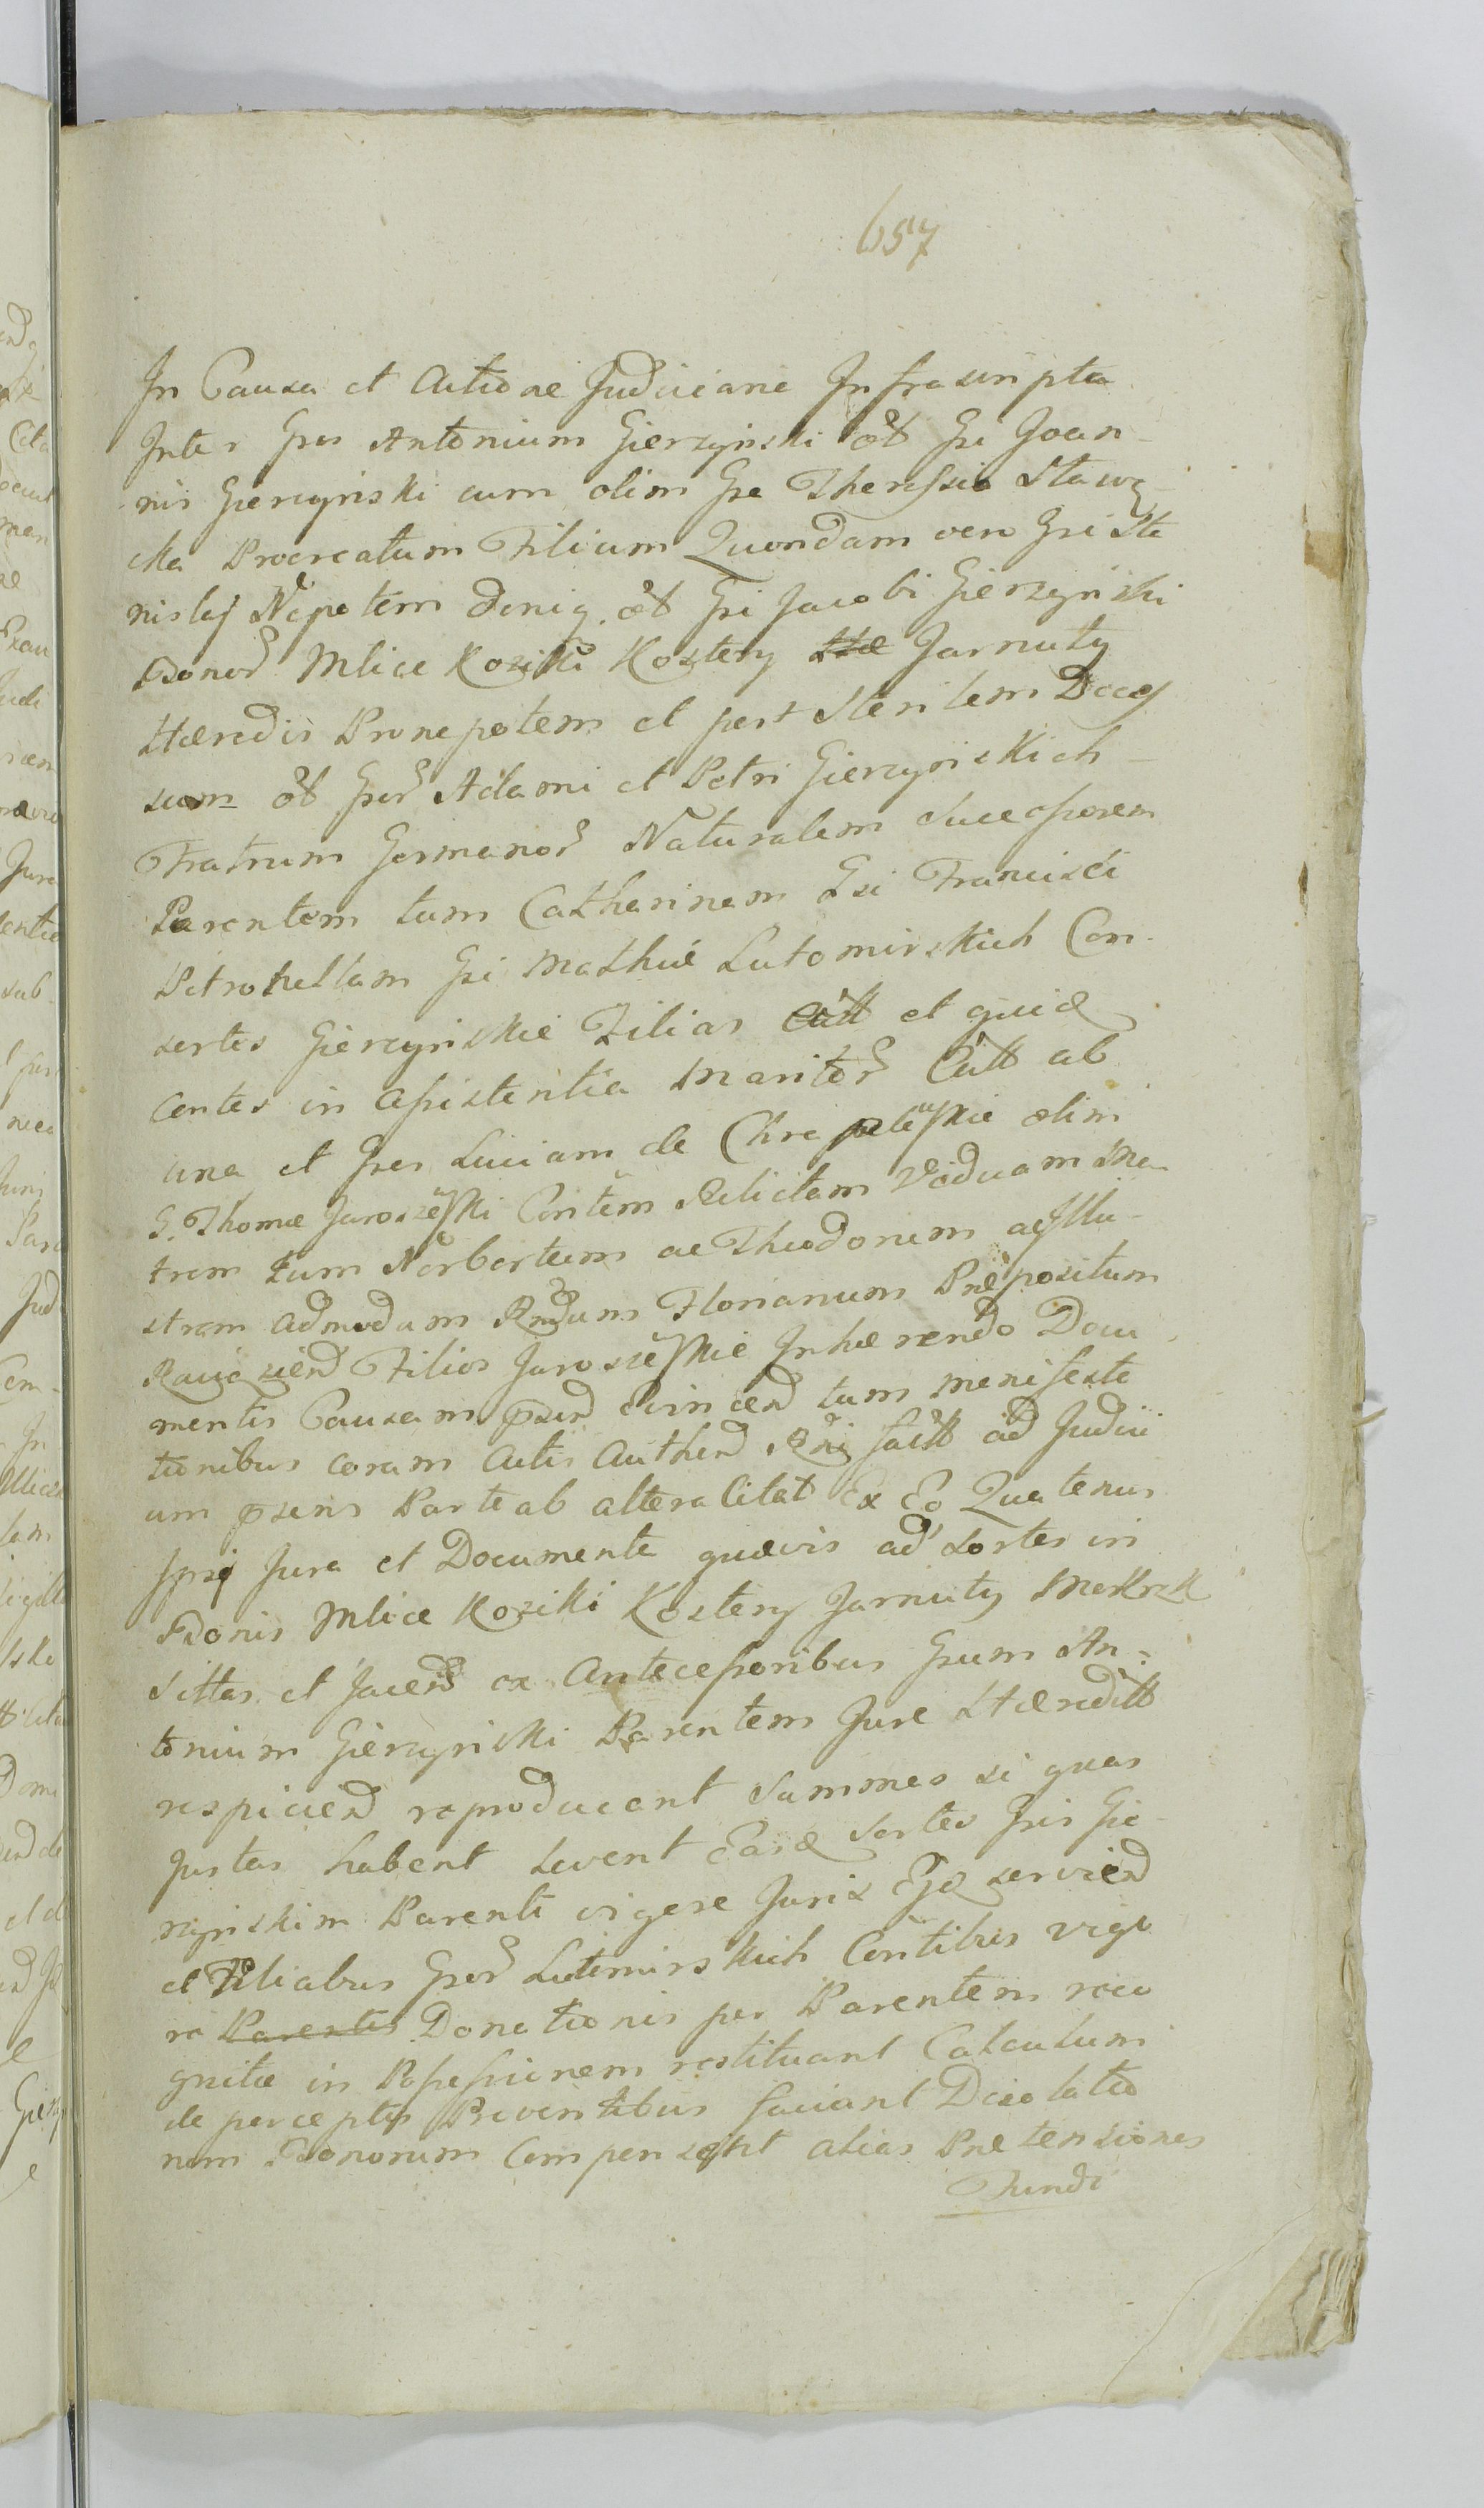 657
In Causa et Actione Judiciane Infrascripta
Inter Gros Antonium Gierzynski olt Gsi Joan-
nis Gierzynski cum olim Gsa Theressia Stawe-
cka Procreatum Filium Quondam vero Gsi Sta
nislaj Nepotem deniq. olt Gsi Jacobi Gierzynski
Bonor Mlice Koziki Kostery Hae Jarnuty
Haeredis Pronepotem et post Sterilem Deces
sum olt Gror Adami et Petri Gierzynskich
Fratrum Germanor Naturalem Successorem
Parentem tum Catharinam Gsi Francisci
Petronellam Gsi Mathiae Lutomirskich Con-
sortes Gierzynskie Filias Citt et
centes in Assistentia Maritor Citt ab
una et Gros Luciam de olim
G. Thomae Jaroszewski Contem Relictam Viduam Ma
trem tum Norbertum ac Theodorum ac Illu-
strem admodum Rndum Florianum Praepositum
Filios Jaroszewskie Inhaerendo Docu
mentis Causam psen evincen tum manifesta
tionibus coram Actis Authen factt ad Judici
um psens Parte ab altera Citat Ex Eo Quatenus
Ipsi Jura et Documenta quaevis ad Sortes in
Bonis Mlice Koziki Kostery Jarnuty
Sittas et Jacen ex Antecessoribus Grum An-
tonium Gierzynski Parentem Jure Haereditt
respicien reproducant Summas si quas
Justas habent levent Easq Sortes Gris Gie-
rzynskim Parenti vigore Juris Ejq servien
et Filiabus Gror Lutomirskich Contibus vigo
re Parentis Donationis per Parentem reco
gnitae in Possessionem restituant Calculum
de perceptis Proventibus faciant Desolatio
nem Bonorum Compensent alias Praetensiones
Fundi